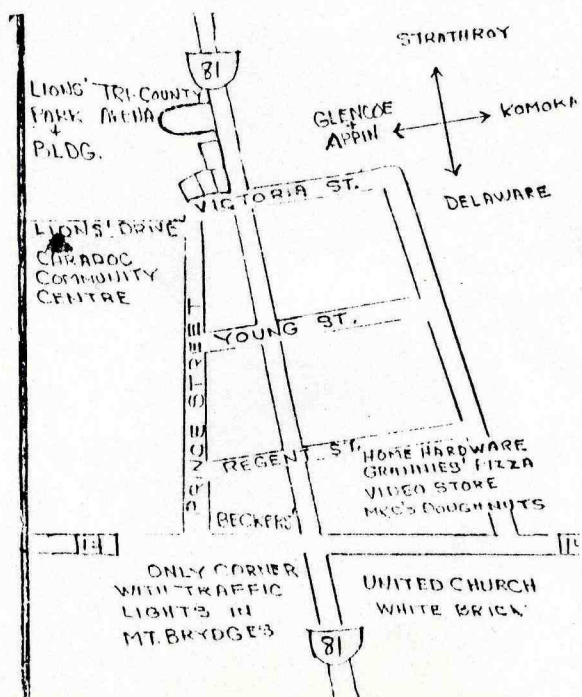 STRATHROY
81
LIONS' TRI-COUNTY
PARK ARENA
+
BLDG.
GLENCOE
+
APPIN
KOMOKA
DELAWARE
VICTORIA ST.
LIONS' DRIVE
CARADOC
COMMUNITY
CENTRE
YOUNG ST.
PRINCE STREET
REGENT ST.
HOME HARDWARE
GRANNIES' PIZZA
VIDEO STORE
DOUGHNUTS
BECKERS'
ONLY CORNER
WITH TRAFFIC
LIGHTS IN
MT. BRYDGES
UNITED CHURCH
WHITE BRICK
81